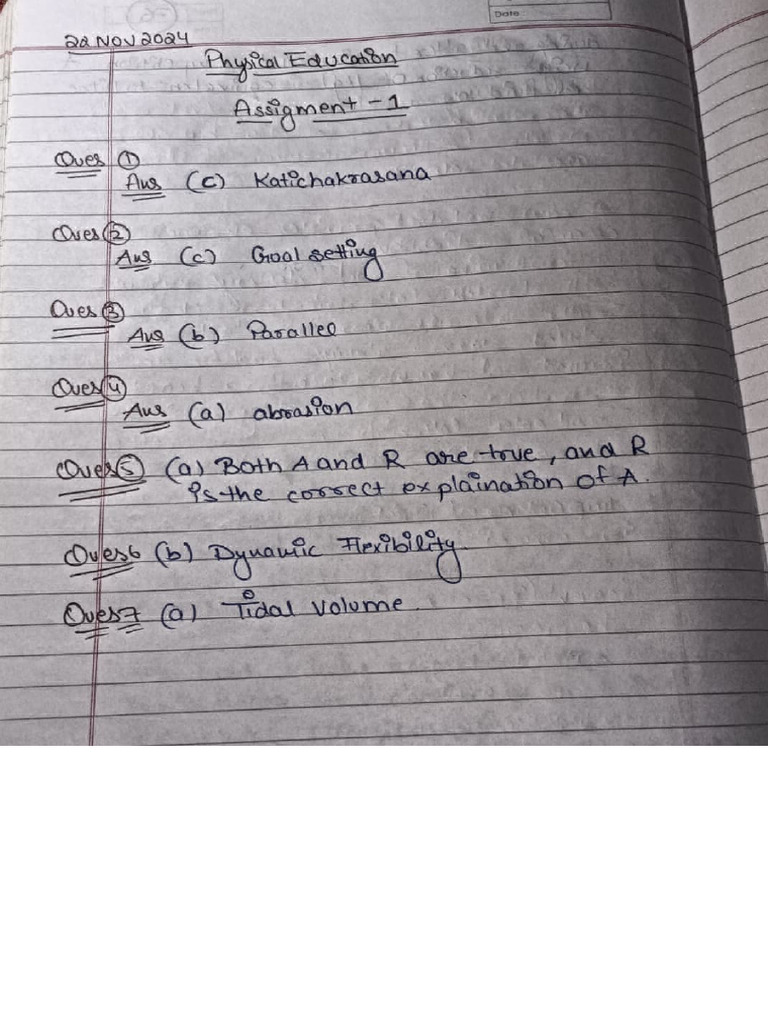 Date
22 NOV 2024
Physical Education
Assigment - 1
Ques ①
Ans (c) Katichakrasana
Ques ②
Ans (c) Goal setting
Ques ③
Ans (b) Parallel
Ques ④
Ans (a) abrasion
Ques ⑤ (a) Both A and R are true, and R
is the correct explaination of A.
Ques 6 (b) Dynamic Flexibility.
Ques 7 (a) Tidal volume.